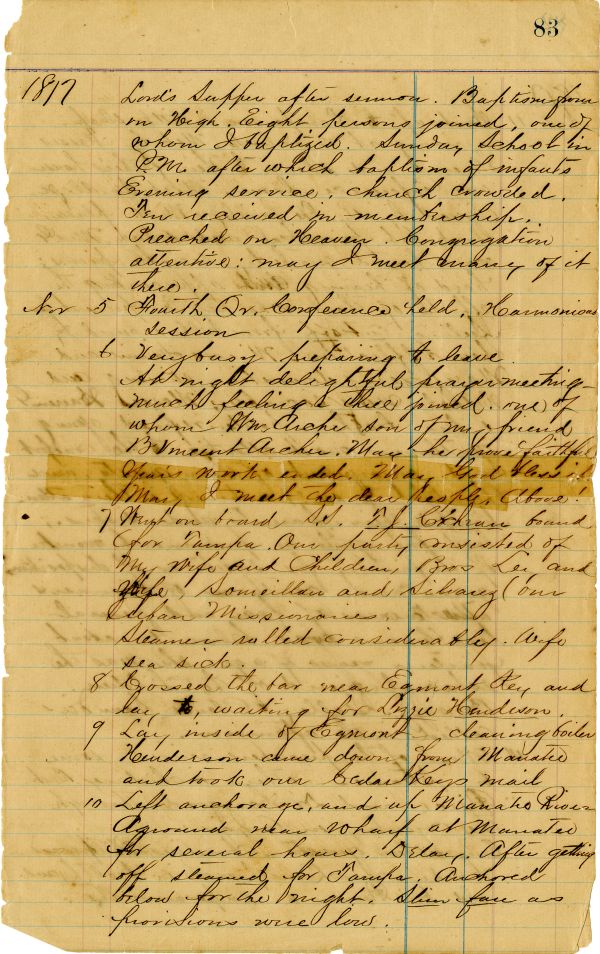 83
1877
Lord's Supper after sermon. Baptism from
on High. Eight persons joined, one of
whom I baptized. Sunday School in
P.M. after which baptism of infants
Evening service, church crowded.
Ten received in membership.
Preached on Heaven. Congregation
attentive: may I meet many of it
there.
Nov 5 Fourth Qr. Conference held. Harmonious
session
6 Very busy preparing to leave.
At night delightful prayer meeting
much feeling & three joined. one of
whom Wm. Archer son of my friend
B Vincent Archer. May he prove faithful
Years work ended. May God bless it
May I meet the dear people, above!
7 Went on board S.S. T.J. Cochran bound
for Tampa. Our party consisted of
My wife and Children, Bros Lee and
Wife, Someillan and Silvarez (our
Cuban Missionaries
Steamer rolled considerably. Wife
sea sick.
8 Crossed the bar near Egmont Key and
lay to, waiting for Lizzie Henderson.
9 Lay inside of Egmont cleaning boiler
Henderson came down from Manatee
and took our Cedar Keys mail
10 Left anchorage, and up Manatee River
Aground near wharf at Manatee
for several hours. Delay. After getting
off steamed for Tampa. Anchored
below for the night. Slim fare as
provisions were low.